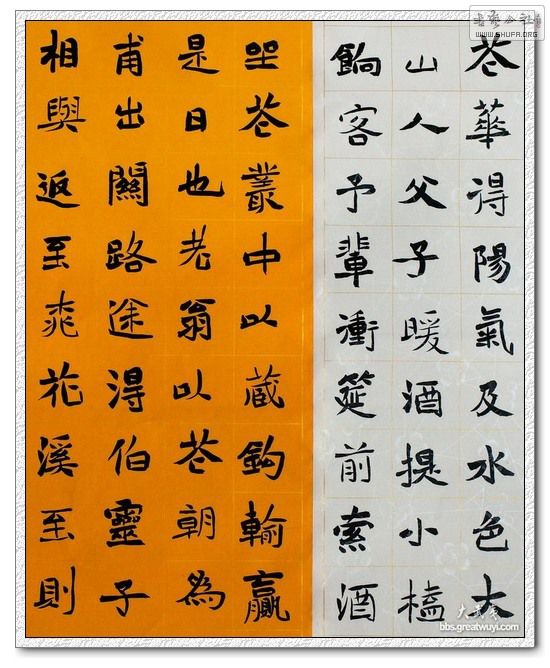 芲華得陽氣及水色大
山人父子暖酒提小榼
餉客予輩衝筵前索酒
坐芲叢中以藏鉤輸贏
是日也老翁以芲朝為
甫出關路途得伯靈子
相與返至桃花溪至則
WWW.SHUFA.ORG
大武夷
bbs.greatwuyi.com